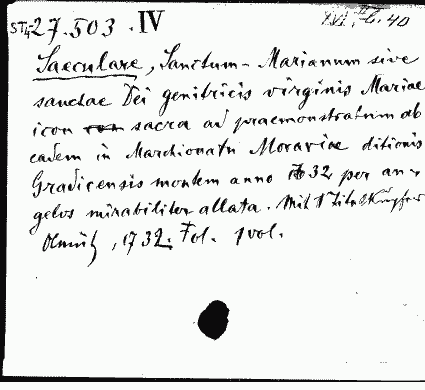 ST4-27.503.IV
XVI. F. 40
Saeculare, Sanctum-Marianum sive
sanctae Dei genitricis virginis Mariae
icon sacra ad praemonstratum ab
eadem in Marchionatu Moraviae ditionis
Gradicensis montem anno 32 per an-
gelos mirabiliter allata. Mit 1 Titelkupfer
Olmütz, 1732. Fol. 1 vol.